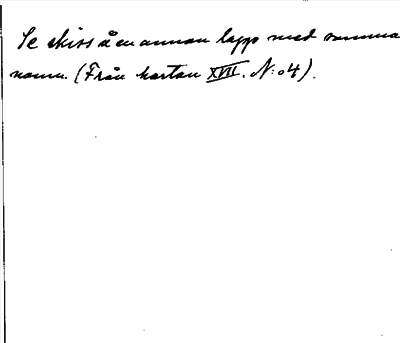 Se skiss å en annan lapp med samma
namn. (Från kartan XVII. N:o 4).